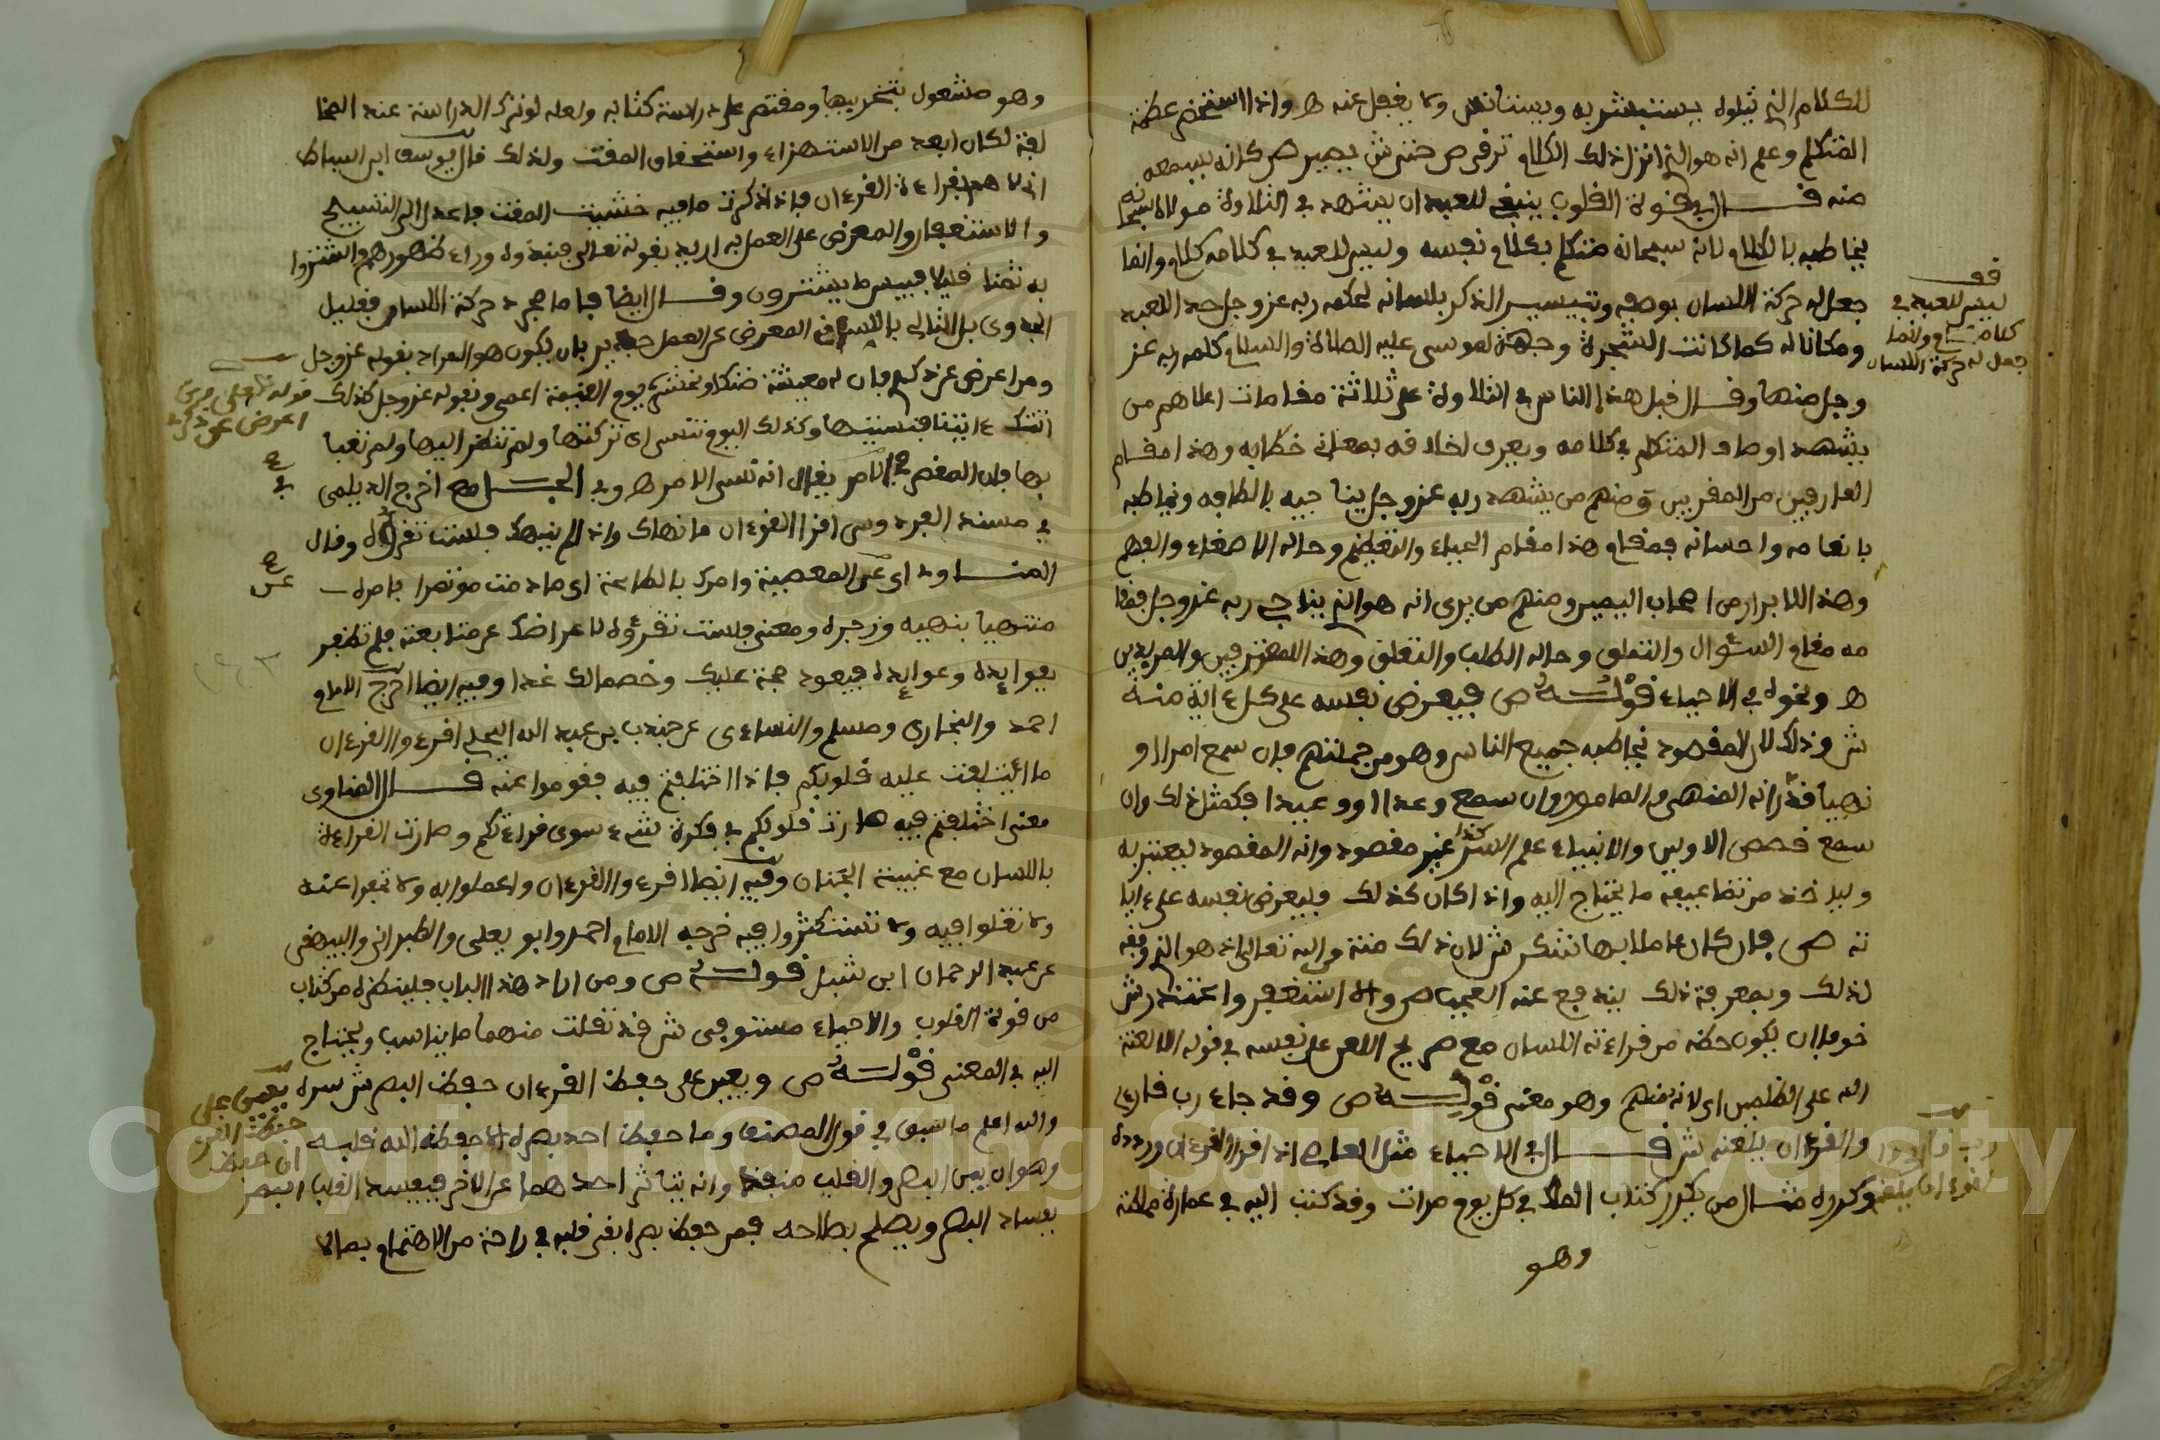 للكلام الذي يتلوه يستبشر به ويستانس ولا يغفل عنه ط واذا استحضر عظمة
المتكلم وعلم انه هو الذي انزل ذلك الكلام ترقى ص حتى ش يصير ص كانه يسمعه
منه قال في قوة القلوب ينبغي للعبد ان يشهد في التلاوة مولاه سبحانه
يخاطبه بالكلام لانه سبحانه متكلم بكلام نفسه وليس للعبد في كلامه كلام وانما
جعل له حركة اللسان بوصفه وتيسير الذكر بلسانه لحكمة ربه عز وجل حدا للعبد
ومكانا له كما كانت الشجرة وجهة لموسى عليه الصلاة والسلام كلمه ربه عز
وجل منها وقال قبل هذا الناس في التلاوة على ثلاثة مقامات اعلاهم من
يشهد اوصاف المتكلم في كلامه ويعرف اخلاقه بمعاني خطابه وهذا مقام
العارفين من المقربين ومنهم من يشهد ربه عز وجل يناجيه بالطافه ويخاطبه
بانعامه واحسانه فمقام هذا مقام الحياء والتعظيم وحاله الاصغاء والفهم
وهذا للابرار من اصحاب اليمين ومنهم من يرى انه هو الذي يناجي ربه عز وجل فمقا
مه مقام السؤال والتملق وحاله الطلب والتعلق وهذا للمعترفين والمريدين
ط ونحوه في الاحياء قوله ص فيعرض نفسه على كل ءاية منه
ش وذلك لان المقصود يخاطبه جميع الناس وهو من جملتهم فان سمع امرا او
نهيا قدر انه المنهي والمامور وان سمع وعدا او وعيدا فكمثل ذلك وان
سمع قصص الاولين والانبياء علم ان السمر غير مقصود وانه المقصود ليعتبر به
ولياخذ من تضاعيفه ما يحتاج اليه واذا كان كذلك فليعرض نفسه على ءايا
ته ص فان كان عاملا بها شكر ش لان ذلك منة من الله تعالى اذ هو الذي وفقه
لذلك وبمعرفة ذلك يندفع عنه العجب ص والا استغفر واعتذر ش
خوفا ان يكون حظه من قراءته اللسان مع صريح اللعن على نفسه في قوله الا لعنة
الله على الظلمين اي لانه منهم وهو معنى قوله ص وقد جاء رب قارئ
والقرءان يلعنه ش قال في الاحياء مثل العاصي اذا قرا القرءان وردده
وكرره مثال من يكرر كتاب الملك في كل يوم مرات وقد كتب اليه في عمارة مملكته
وهو
قف
ليس للعبد في
كلامه كلام وانما
جعل له حركة اللسان
رب قارئ
القرءان يلعنه
وهو مشغول بتخريبها ومقتصر على دراسة كتابه ولعله لو ترك الدراسة عند المخا
لفة لكان ابعد من الاستهزاء واستحقاق المقت ولذلك قال يوسف ابن اسباط
اني لاهم بقراءة القرءان فاذا ذكرت ما فيه خشيت المقت فاعدل الى التسبيح
والاستغفار والمعرض على العمل به اريد بقوله تعالى فنبذوه وراء ظهورهم واشتروا
به ثمنا قليلا فبيس ما يشترون وقال ايضا فاما مجرد حركة اللسان فقليل
الجدوى بل التالي باللسان المعرض عن العمل جدير بان يكون هو المراد بقوله عز وجل
ومن اعرض عن ذكري فان له معيشة ضنكا ونحشره يوم القيمة اعمى وبقوله عز وجل كذلك
اتتك ءايتنا فنسيتها وكذلك اليوم تنسى اي تركتها ولم تنظر اليها ولم تعبا
بها فان المقصر في الامر يقال انه نسي الامر ط وفي الجامع اخرج الديلمي
في مسند الفردوس اقرا القرءان ما نهاك واذا لم ينهك فلست تقرؤه وقال
المناوي اي عن المعصية وامرك بالطاعة اي ما دمت مؤتمرا بامره
منتهيا بنهيه وزجره ومعنى فلست تقرؤه لاعراضك عن متابعته فلم تظفر
بفوائده وعوائده فيعود حجة عليك وخصما لك غدا وفيه ايضا اخرج الامام
احمد والبخاري ومسلم والنساءي عن جندب بن عبد الله البجلي اقرءوا القرءان
ما ائتلفت عليه قلوبكم فاذا اختلفتم فيه فقوموا عنه قال المناوي
معنى اختلفتم فيه صارت قلوبكم في فكرة شيء سوى قراءتكم وصارت القراءة
باللسان مع غيبة الجنان وفيه ايضا اقرءوا القرءان واعملوا به ولا تجفوا عنه
ولا تغلوا فيه ولا تستكثروا فيه خرجه الامام احمد وابو يعلى والطبراني والبيهقي
عن عبد الرحمان ابن شبل قوله ص ومن اراد هذا الباب فلينظره من كتاب
ص قوة القلوب والاحياء مستوفى ش قد نقلت منهما ما يناسب ويحتاج
اليه في المعنى قوله ص ويعين على حفظ القرءان حفظ البصر ش سره
والله اعلم ما سبق في قول المصنف وما حفظ احد بصره الا حفظ الله قلبه
وهو ان بين البصر والقلب منفذا وانه يتاثر احدهما عن الاخر فيفسد القلب
بفساد البصر ويصلح بصلاحه فمن حفظ بصره بقي قلبه في راحة من الاهتمام بصالا
قوله تعلى ومن
اعرض عن ذكري
يعين على
حفظ القر
ان حفظ
البصر